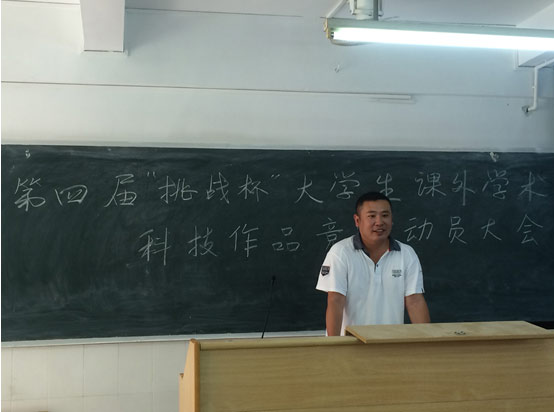 第四届“挑战杯”大学生课外学术
科技作品竞 动员大会